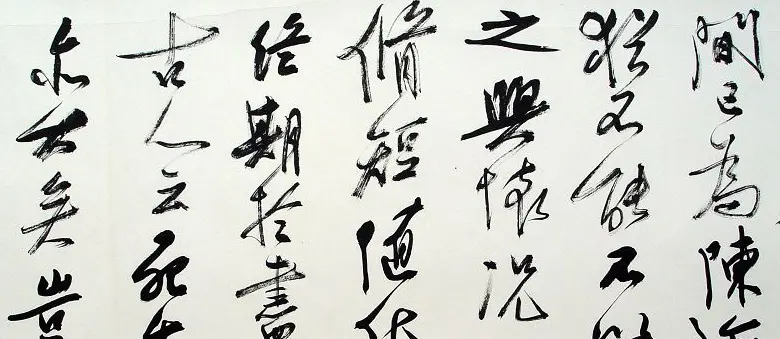 間已為陳
猶不能不
之興懷況
脩短隨化
終期於盡
古人云死生
亦大矣豈